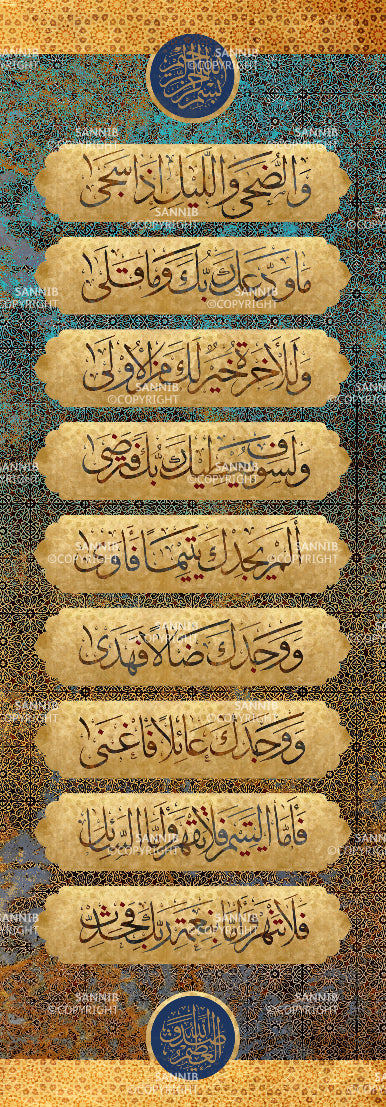 بسم الله الرحمن الرحيم
والضحى والليل إذا سجى
ما ودعك ربك وما قلى
وللآخرة خير لك من الأولى
ولسوف يعطيك ربك فترضى
ألم يجدك يتيما فآوى
ووجدك ضالا فهدى
ووجدك عائلا فأغنى
فأما اليتيم فلا تقهر وأما السائل
فلا تنهر وأما بنعمة ربك فحدث
صدق الله العظيم
SANNIB
©COPYRIGHT